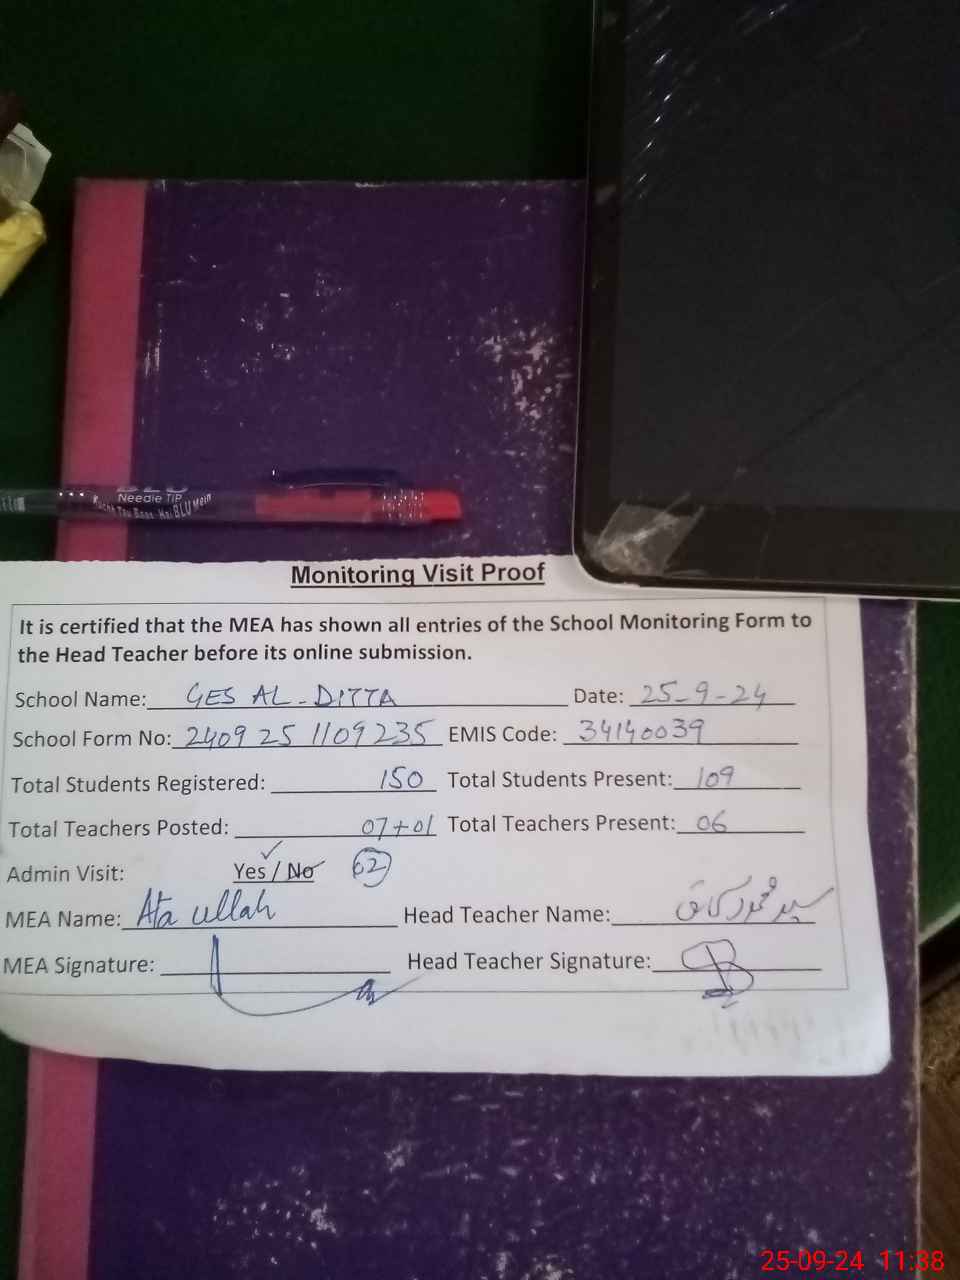 Needle TIP
Kuchh Tou Baat Hai BLU Mein
Monitoring Visit Proof
It is certified that the MEA has shown all entries of the School Monitoring Form to
the Head Teacher before its online submission.
School Name: GES AL-DITTA Date: 25-9-24
School Form No: 2409 25 1109235 EMIS Code: 34140039
Total Students Registered: 150 Total Students Present: 109
Total Teachers Posted: 07+01 Total Teachers Present: 06
Admin Visit: Yes / No 02
MEA Name: Ata ullah Head Teacher Name:
MEA Signature: Head Teacher Signature:
25-09-24 11:38